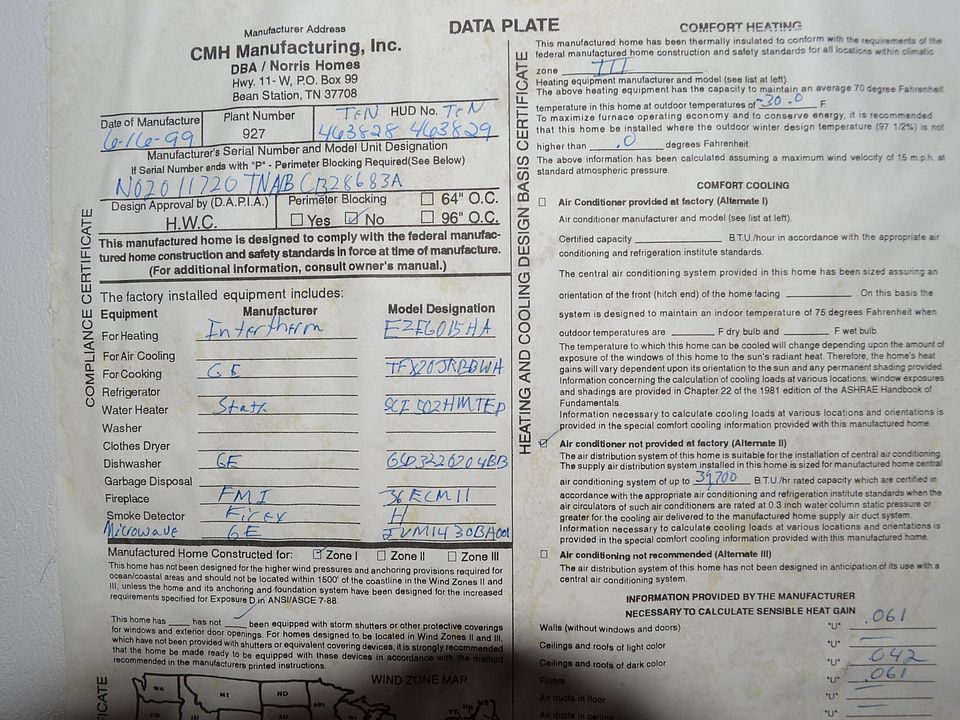 DATA PLATE
Manufacturer Address
CMH Manufacturing, Inc.
DBA / Norris Homes
Hwy. 11- W, P.O. Box 99
Bean Station, TN 37708
Date of Manufacture
6-16-99
Plant Number
927
HUD No.
TEN TEN
463828 463829
Manufacturer's Serial Number and Model Unit Designation
If Serial Number ends with "P" - Perimeter Blocking Required(See Below)
N02011720TNAB
Design Approval by (D.A.P.I.A.)
H.W.C.
Perimeter Blocking
Yes No
64" O.C.
96" O.C.
COMPLIANCE CERTIFICATE
This manufactured home is designed to comply with the federal manufac-
tured home construction and safety standards in force at time of manufacture.
(For additional information, consult owner's manual.)
The factory installed equipment includes:
Equipment Manufacturer Model Designation
For Heating Intertherm
For Air Cooling
For Cooking GE
Refrigerator
Water Heater State
Washer
Clothes Dryer
Dishwasher GE
Garbage Disposal
Fireplace FMI 36ECM11
Smoke Detector Firex H
Microwave GE
Manufactured Home Constructed for: Zone I Zone II Zone III
This home has not been designed for the higher wind pressures and anchoring provisions required for
ocean/coastal areas and should not be located within 1500' of the coastline in the Wind Zones II and
III, unless the home and its anchoring and foundation system have been designed for the increased
requirements specified for Exposure D in ANSI/ASCE 7-88.
This home has ___ has not ___ been equipped with storm shutters or other protective coverings
for windows and exterior door openings. For homes designed to be located in Wind Zones II and III,
which have not been provided with shutters or equivalent covering devices, it is strongly recommended
that the home be made ready to be equipped with these devices in accordance with the method
recommended in the manufacturers printed instructions.
WIND ZONE MAP
WA MT ND
HEATING AND COOLING DESIGN BASIS CERTIFICATE
COMFORT HEATING
This manufactured home has been thermally insulated to conform with the requirements of the
federal manufactured home construction and safety standards for all locations within climatic
zone III
Heating equipment manufacturer and model (see list at left).
The above heating equipment has the capacity to maintain an average 70 degree Fahrenheit
temperature in this home at outdoor temperatures of -30.0 F.
To maximize furnace operating economy and to conserve energy, it is recommended
that this home be installed where the outdoor winter design temperature (97 1/2%) is not
higher than .0 degrees Fahrenheit.
The above information has been calculated assuming a maximum wind velocity of 15 m.p.h. at
standard atmospheric pressure.
COMFORT COOLING
Air conditioner provided at factory (Alternate I)
Air conditioner manufacturer and model (see list at left).
Certified capacity ___ B.T.U./hour in accordance with the appropriate air
conditioning and refrigeration institute standards.
The central air conditioning system provided in this home has been sized assuring an
orientation of the front (hitch end) of the home facing ___ . On this basis the
system is designed to maintain an indoor temperature of 75 degrees Fahrenheit when
outdoor temperatures are ___ F dry bulb and ___ F wet bulb.
The temperature to which this home can be cooled will change depending upon the amount of
exposure of the windows of this home to the sun's radiant heat. Therefore, the home's heat
gains will vary dependent upon its orientation to the sun and any permanent shading provided.
Information concerning the calculation of cooling loads at various locations, window exposures
and shadings are provided in Chapter 22 of the 1981 edition of the ASHRAE Handbook of
Fundamentals.
Information necessary to calculate cooling loads at various locations and orientations is
provided in the special comfort cooling information provided with this manufactured home.
Air conditioner not provided at factory (Alternate II)
The air distribution system of this home is suitable for the installation of central air conditioning.
The supply air distribution system installed in this home is sized for manufactured home central
air conditioning system of up to 39,700 B.T.U./hr rated capacity which are certified in
accordance with the appropriate air conditioning and refrigeration institute standards when the
air circulators of such air conditioners are rated at 0.3 inch water column static pressure or
greater for the cooling air delivered to the manufactured home supply air duct system.
Information necessary to calculate cooling loads at various locations and orientations is
provided in the special comfort cooling information provided with this manufactured home.
Air conditioning not recommended (Alternate III)
The air distribution system of this home has not been designed in anticipation of its use with a
central air conditioning system.
INFORMATION PROVIDED BY THE MANUFACTURER
NECESSARY TO CALCULATE SENSIBLE HEAT GAIN
Walls (without windows and doors) "U" .061
Ceilings and roofs of light color "U"
Ceilings and roofs of dark color "U" .042
Floors "U" .061
Air ducts in floor "U"
Air ducts in ceiling "U"